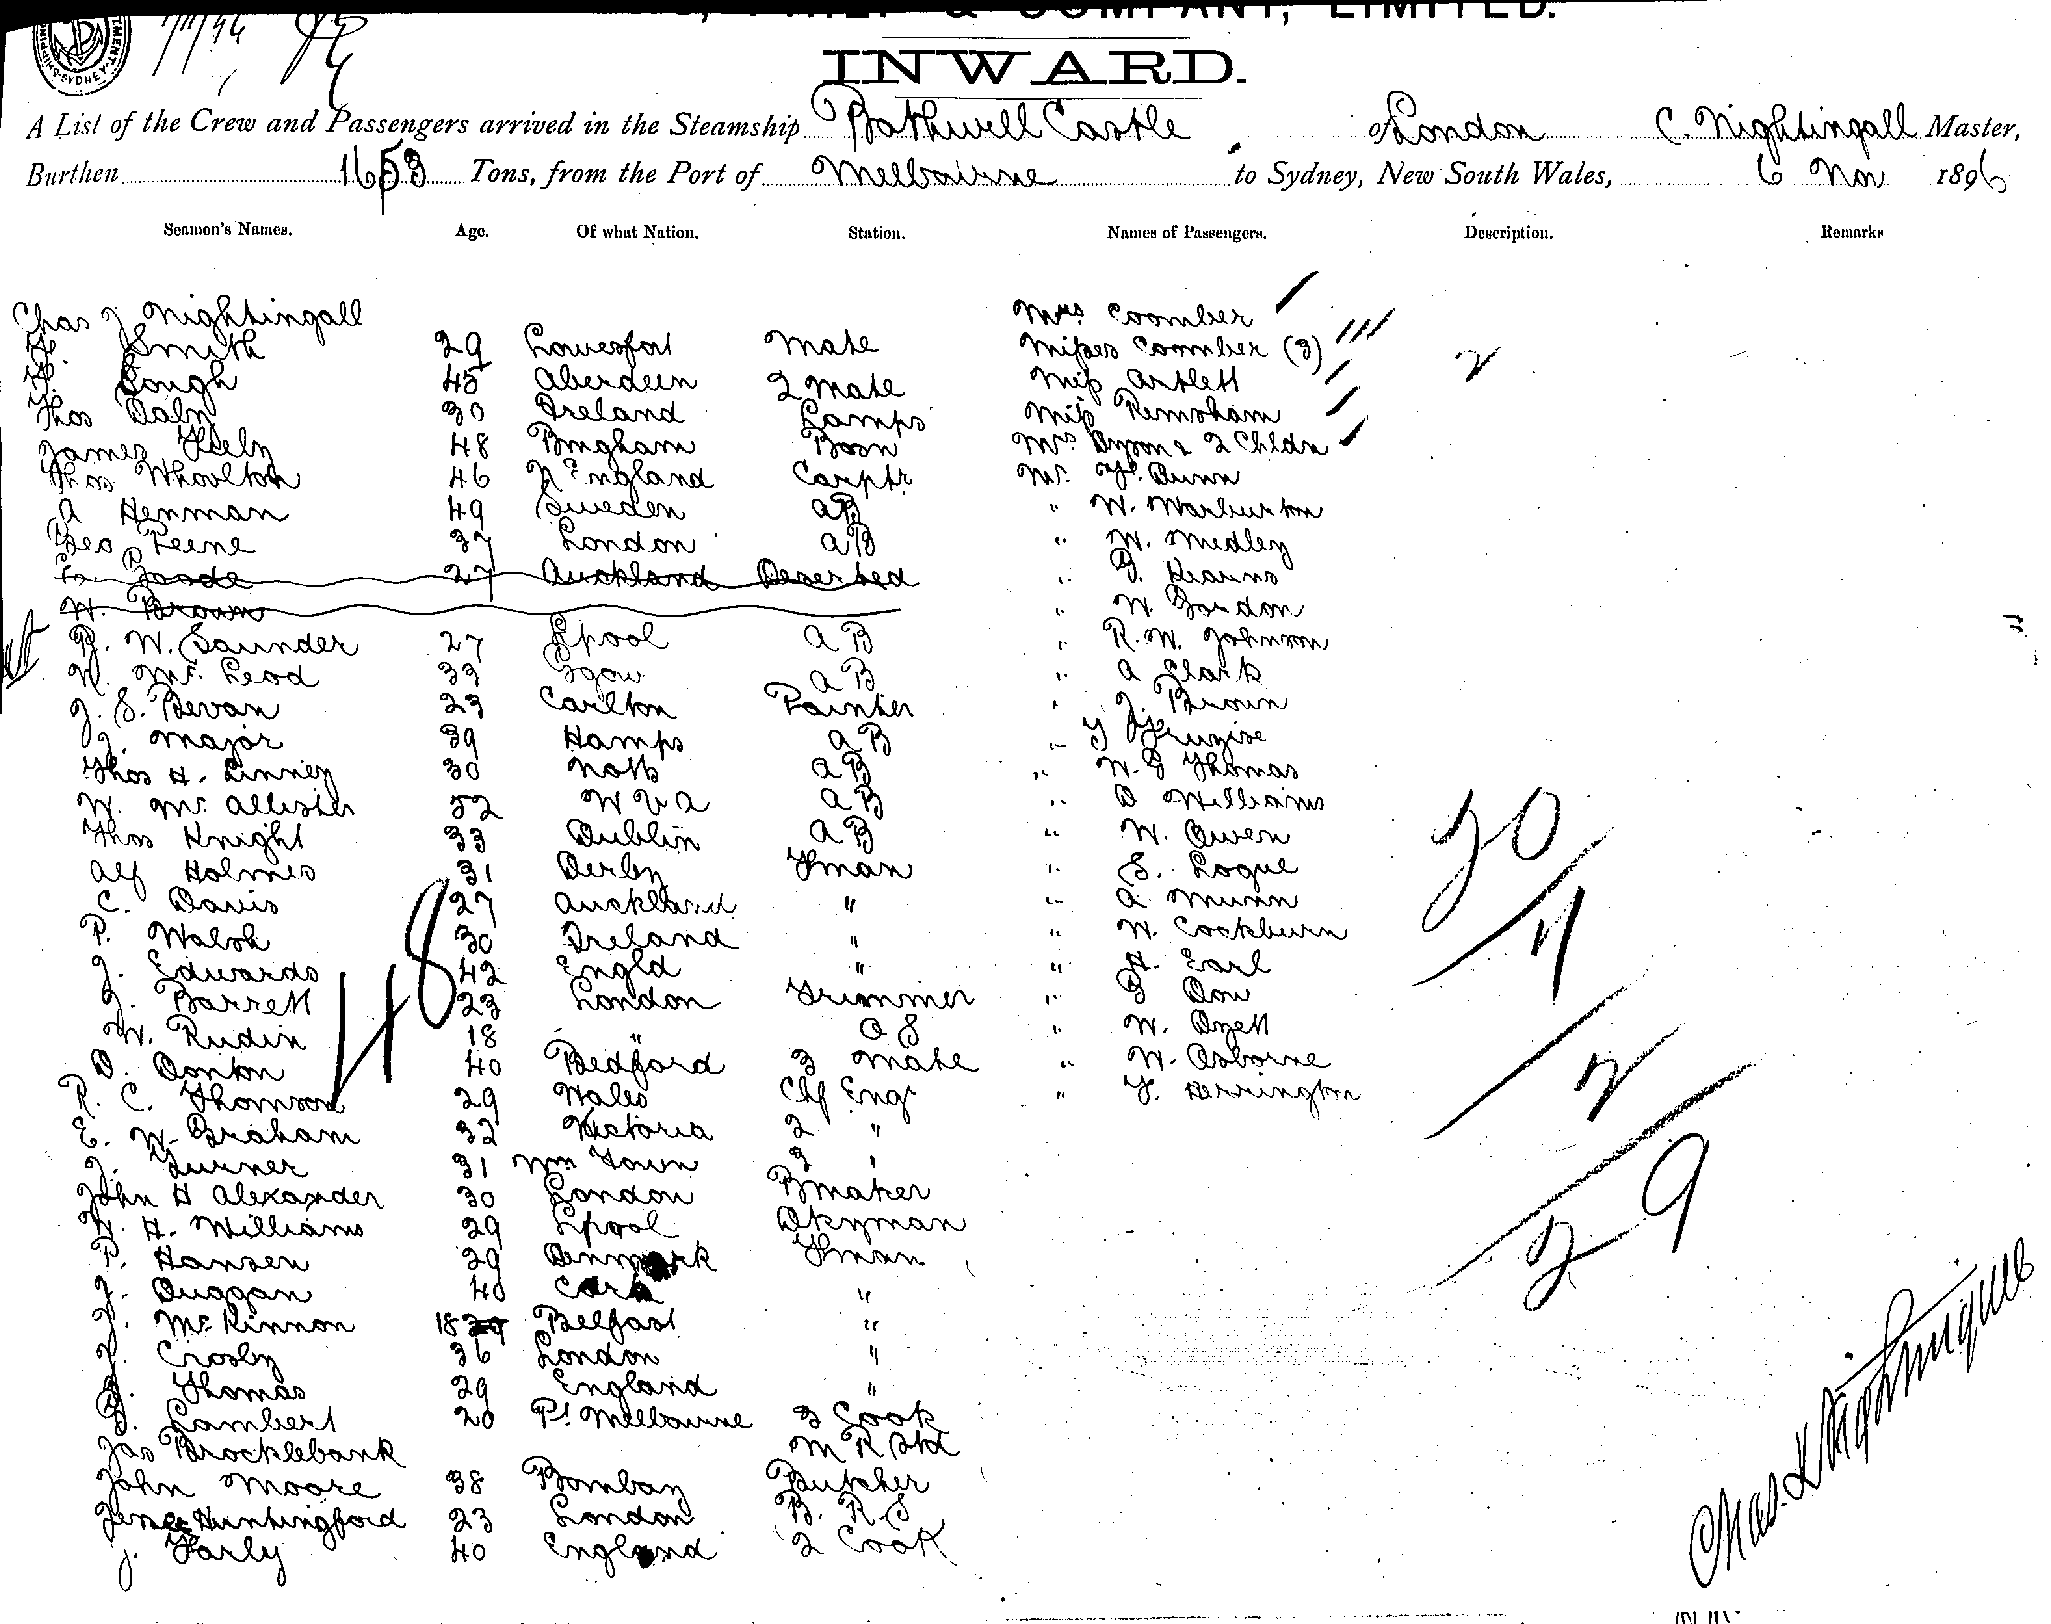 & COMPANY, LIMITED.
INWARD.
A List of the Crew and Passengers arrived in the Steamship Bothwell Castle of London C. Nightingall Master,
Burthen 1653 Tons, from the Port of Melbourne to Sydney, New South Wales, 6 Nov 1896
Seamen's Names. Age. Of what Nation. Station. Names of Passengers. Description. Remarks
Chas J Nightingall Mrs Coomber
Smith 29 Lowestoft Mate Misses Coomber (3)
Lough 45 Aberdeen 2 Mate Miss Artlett
Thos Daly 30 Ireland Lamps Miss Remsham
James Kiely 48 Bmgham Bosn Mrs Dyson & 2 Childn
Thos Whoulton 46 N England Carptr Mr Dunn
A Henman 49 Sweden AB " W. Warburton
Geo Feene 37 London AB " W. Medley
Goode 27 Auckland Deserted " Kearns
W. Brown " W. Gordon
R. W. Saunder 27 Lpool AB " R. W. Johnson
N. Mc Leod 33 Ggow AB " A Clark
J. S. Bevan 23 Carlton Painter " J. Brown
J. Major 39 Hamps AB "
Thos H. Linney 30 Notts AB " W. G Thomas
W. Mc Allister 52 W V A AB " D Williams
Thos Knight 33 Dublin AB " W. Owen
Alf Holmes 31 Derby Fman " S. Logue
C. Davis 27 Auckland " " A Munn
P. Walsh 30 Ireland " " W. Cockburn
J. Edwards 42 Engld " " H. Earl
J. Barrett 23 London Trimmer " Dow
W. Rudin 18 " O S " W. Dyett
D. Donton 40 Bedford 3 Mate " W. Osborne
R. C. Thomson 29 Wales Chf Engr " F. Herrington
E. W. Graham 32 Victoria 2 "
J. Turner 31 Wm Town 3 "
John H Alexander 30 London Bmaker
W. H. Williams 29 Lpool Dkyman
P. Hansen 29 Denmark Fman
J. Duggan 40 Cork "
J. McKinnon 18 Belfast "
J. Crosby 36 London "
J. Thomas 29 England "
G. Lambert 20 Pt Melbourne 3 Cook
Jas Brocklebank M R Std
John Moore 38 Bombay Butcher
Huntingford 23 London B. R S
J. Farly 40 England 2 Cook
48
20
7
2
29
Chas J Nightingall